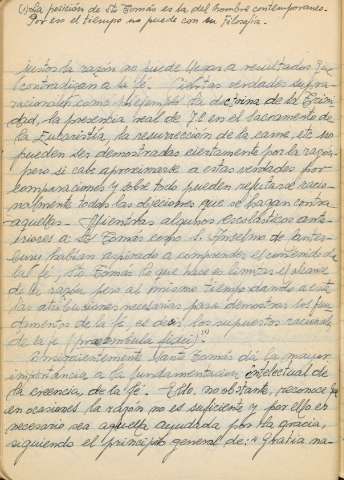 (1) La posición de Sto Tomás es la del hombre contemporaneo.
Por eso el tiempo no puede con su Filosofía.
juntos la razón no puede llegar a resultados que
contradigan a la fe. Ciertas verdades supra-
racionales como por ejemplo la doctrina de la Trini-
dad, la presencia real de J.C. en el Sacramento de
la Eucaristía, la resurrección de la carne, etc no
pueden ser demostradas ciertamente por la razón
pero si cabe aproximarse a estas verdades por
comparaciones y sobre todo pueden refutarse racio-
nalmente todas las objeciones que se hagan contra
aquellas. Mientras algunos escolásticos ante-
riores a Sto Tomás como S. Anselmo de Canter-
bury habían aspirado a comprender el contenido de
la fe, Sto Tomás lo que hace es limitar el alcance
de la razón pero al mismo tiempo dando a esta
las atribuciones necesarias para demostrar los fun-
damentos de la fe, es decir, los supuestos racionales
de la fe (praeambula fidei).(1)
Consecuentemente Santo Tomás da la mayor
importancia a la fundamentación intelectual de
la creencia, de la fe. Ello, no obstante, reconoce que
en ocasiones la razón no es suficiente y por ello es
necesario sea aquella ayudada por la gracia,
siguiendo el principio general de: "Gratia na-